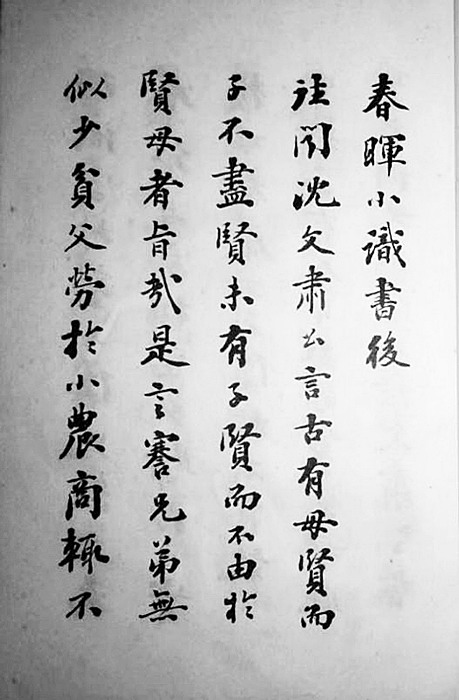 春暉小識書後
往聞沈文肅公言古有母賢而
子不盡賢未有子賢而不由於
賢母者旨哉是言謇兄弟無
似少貧父勞於小農商輒不